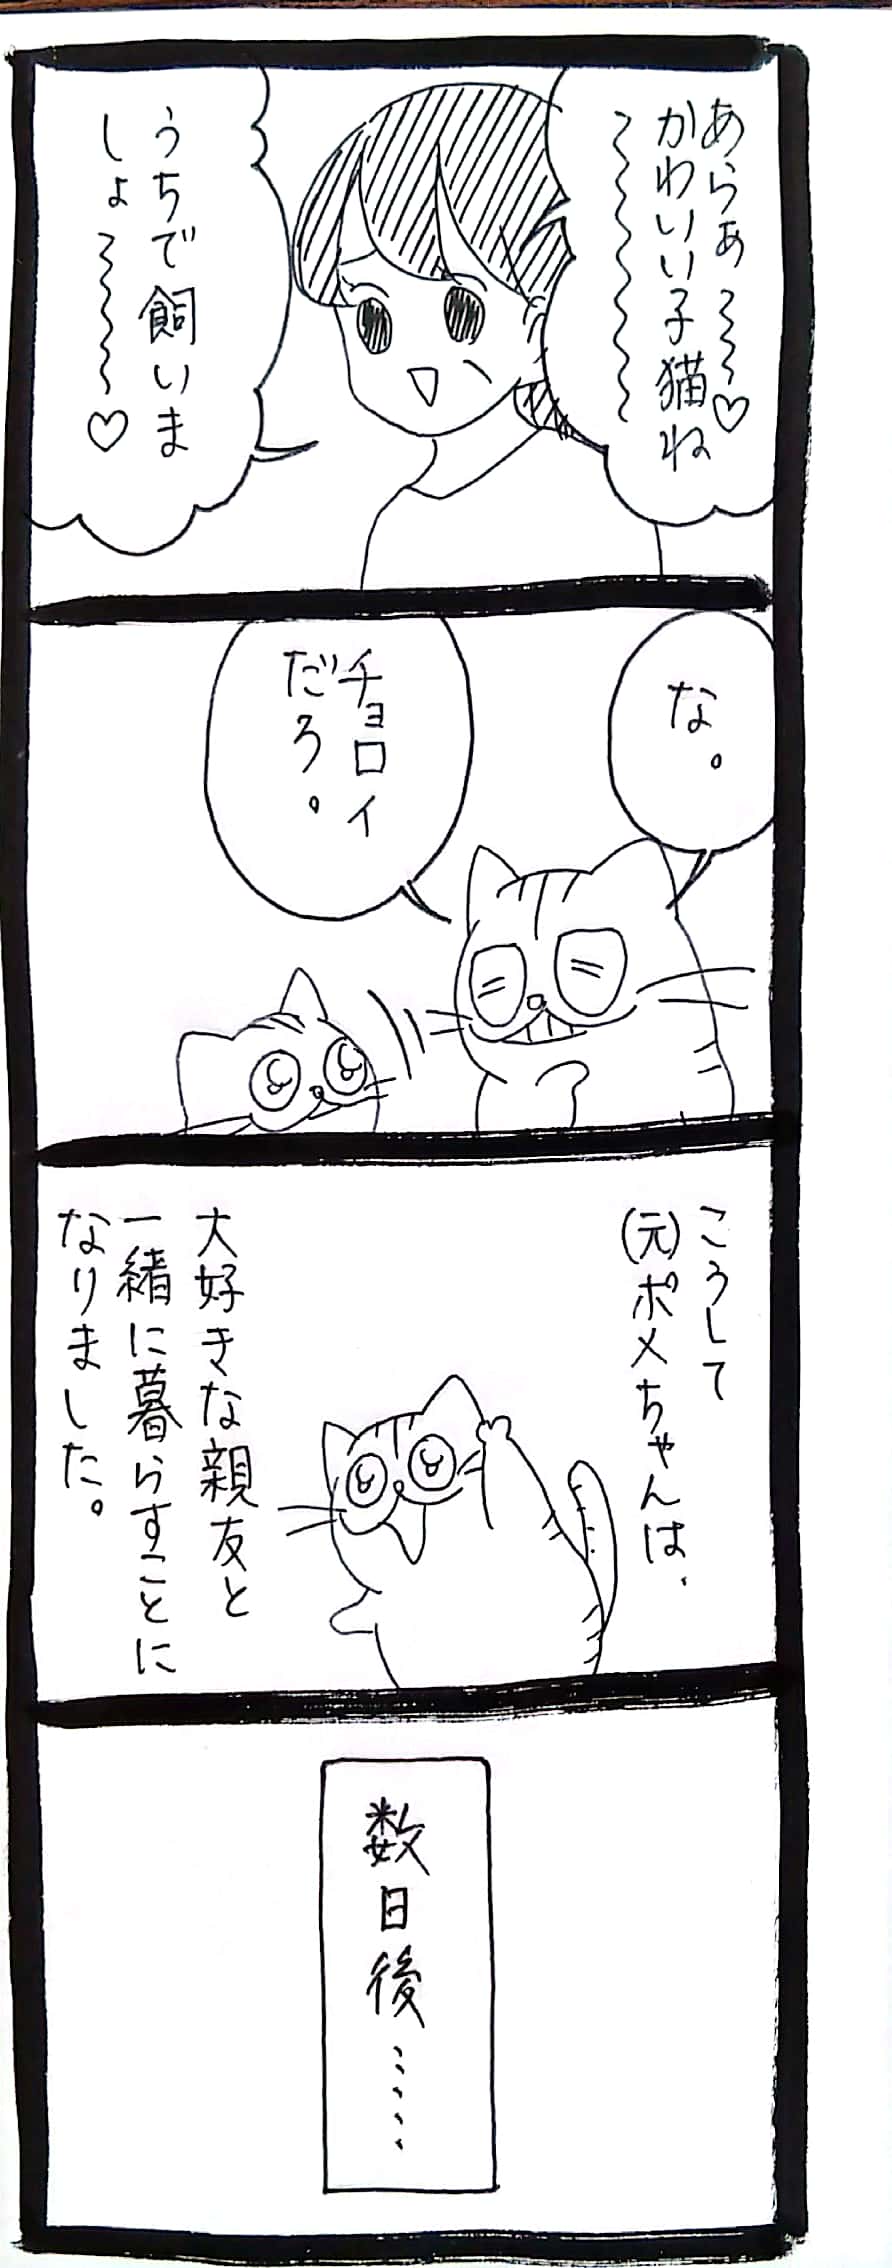 あらぁ〜〜♡
かわいい子猫ね
〜〜〜〜〜
うちで飼いま
しょ〜〜〜♡
な。
チョロイ
だろ。
こうして
(元)ポメちゃんは、
大好きな親友と
一緒に暮らすことに
なりました。
数日後……